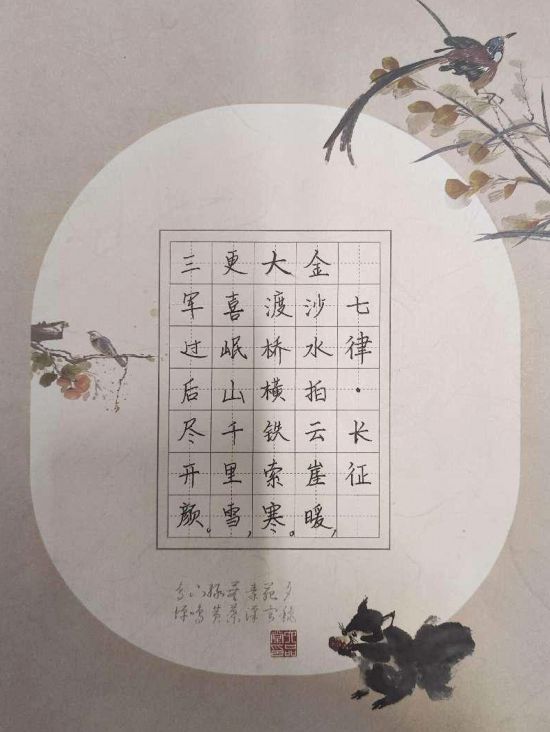 七律·长征
金沙水拍云崖暖，
大渡桥横铁索寒。
更喜岷山千里雪，
三军过后尽开颜。